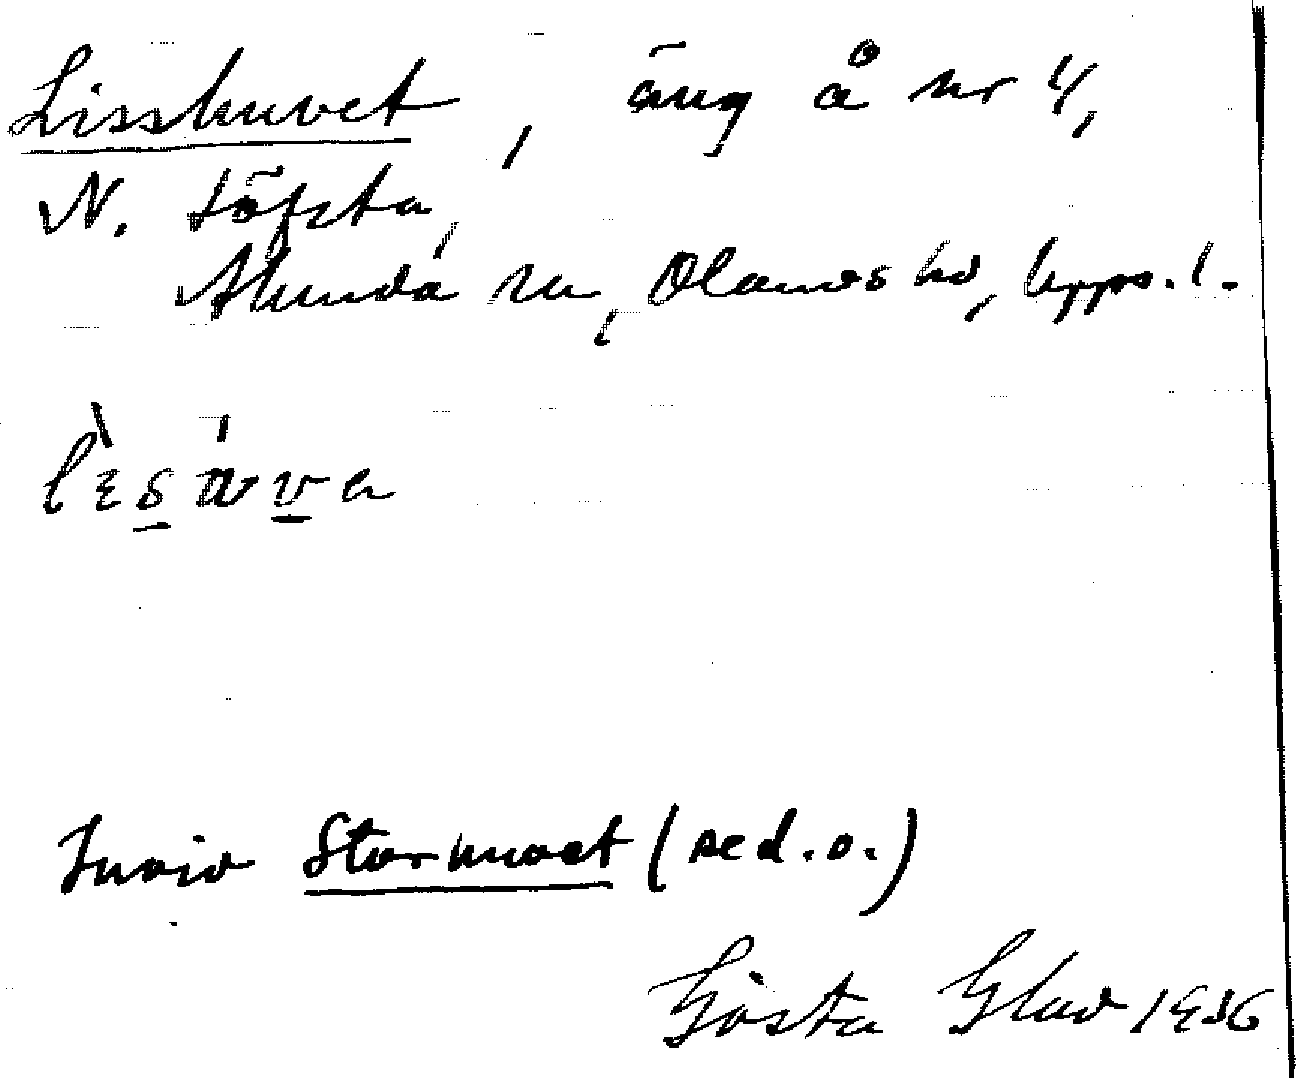 Lisshuvet, äng å nr 4,
N. Löfsta,
Alunda sn, Olands hd, Upps. l.
Invid Storhuvet (se d. o.)
Gösta Glad 1936